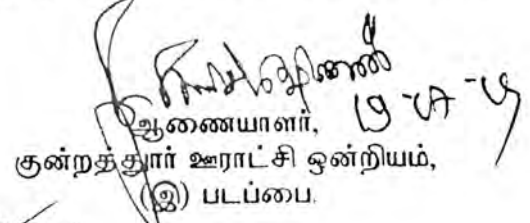 ஆணையாளர்,
குன்றத்தூர் ஊராட்சி ஒன்றியம்,
(இ) படப்பை.